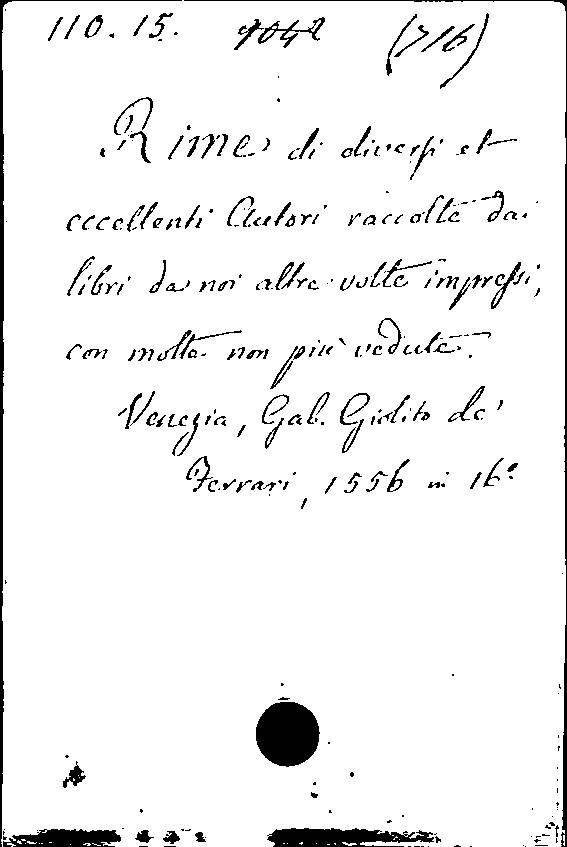 110. 15. 9042 (716)
Rime di diversi et
eccellenti Autori raccolte dai
libri da noi altre volte impressi,
con molte non più vedute.
Venezia, Gab. Giolito de'
Ferrari, 1556 in 16º